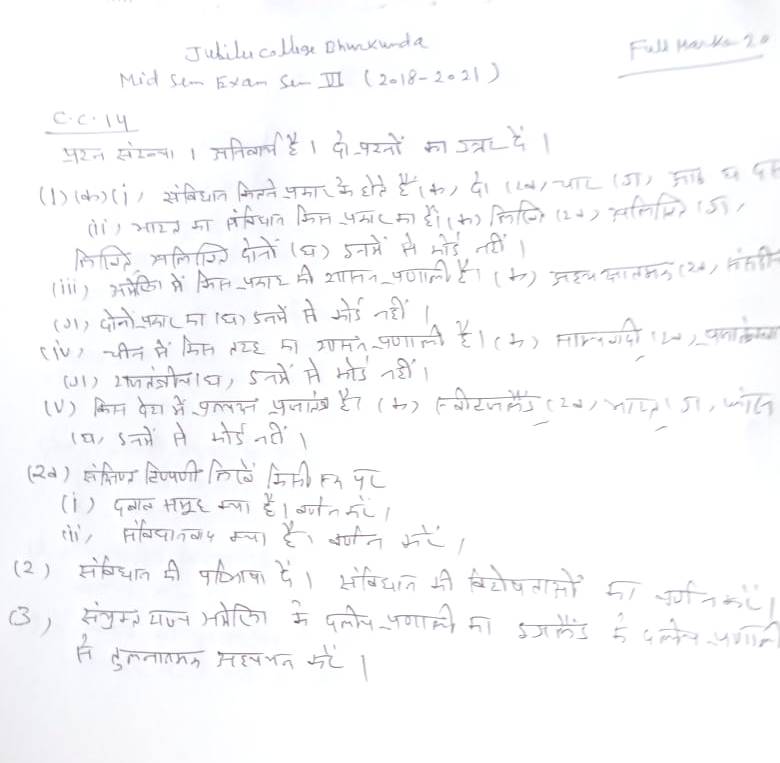 Jubilee college Bhurkunda
Full Marks 20
Mid Sem Exam Sem VI (2018-2021)
C.C.14
प्रश्न संख्या 1 अनिवार्य है। दो प्रश्नों का उत्तर दें।
(1) (क) (i) संविधान कितने प्रकार के होते हैं (क) दो (ख) चार (ग) आठ घ दस
(ii) भारत का संविधान किस प्रकार का है। (क) लिखित (ख) अलिखित (ग)
लिखित अलिखित दोनों (घ) इनमें से कोई नहीं।
(iii) अमेरिका में किस प्रकार की शासन प्रणाली है। (क) अध्यक्षात्मक (ख) संसदीय
(ग) दोनों प्रकार का (घ) इनमें से कोई नहीं।
(iv) चीन में किस तरह का शासन प्रणाली है। (क) साम्यवादी (ख)
(ग) राजतंत्रीय (घ) इनमें से कोई नहीं।
(v) किस देश में प्रत्यक्ष प्रजातंत्र है। (क) स्वीटजरलैंड (ख) भारत (ग) फ्रांस
(घ) इनमें से कोई नहीं।
(ख) संक्षिप्त टिप्पणी लिखें किसी एक पर
(i) दबाव समूह क्या है। वर्णन करें।
(ii) संविधानवाद क्या है। वर्णन करें।
(2) संविधान की परिभाषा दें। संविधान की विशेषताओं का वर्णन करें।
(3) संयुक्त राज्य अमेरिका के दलीय प्रणाली का इंगलैंड के दलीय प्रणाली
से तुलनात्मक अध्ययन करें।